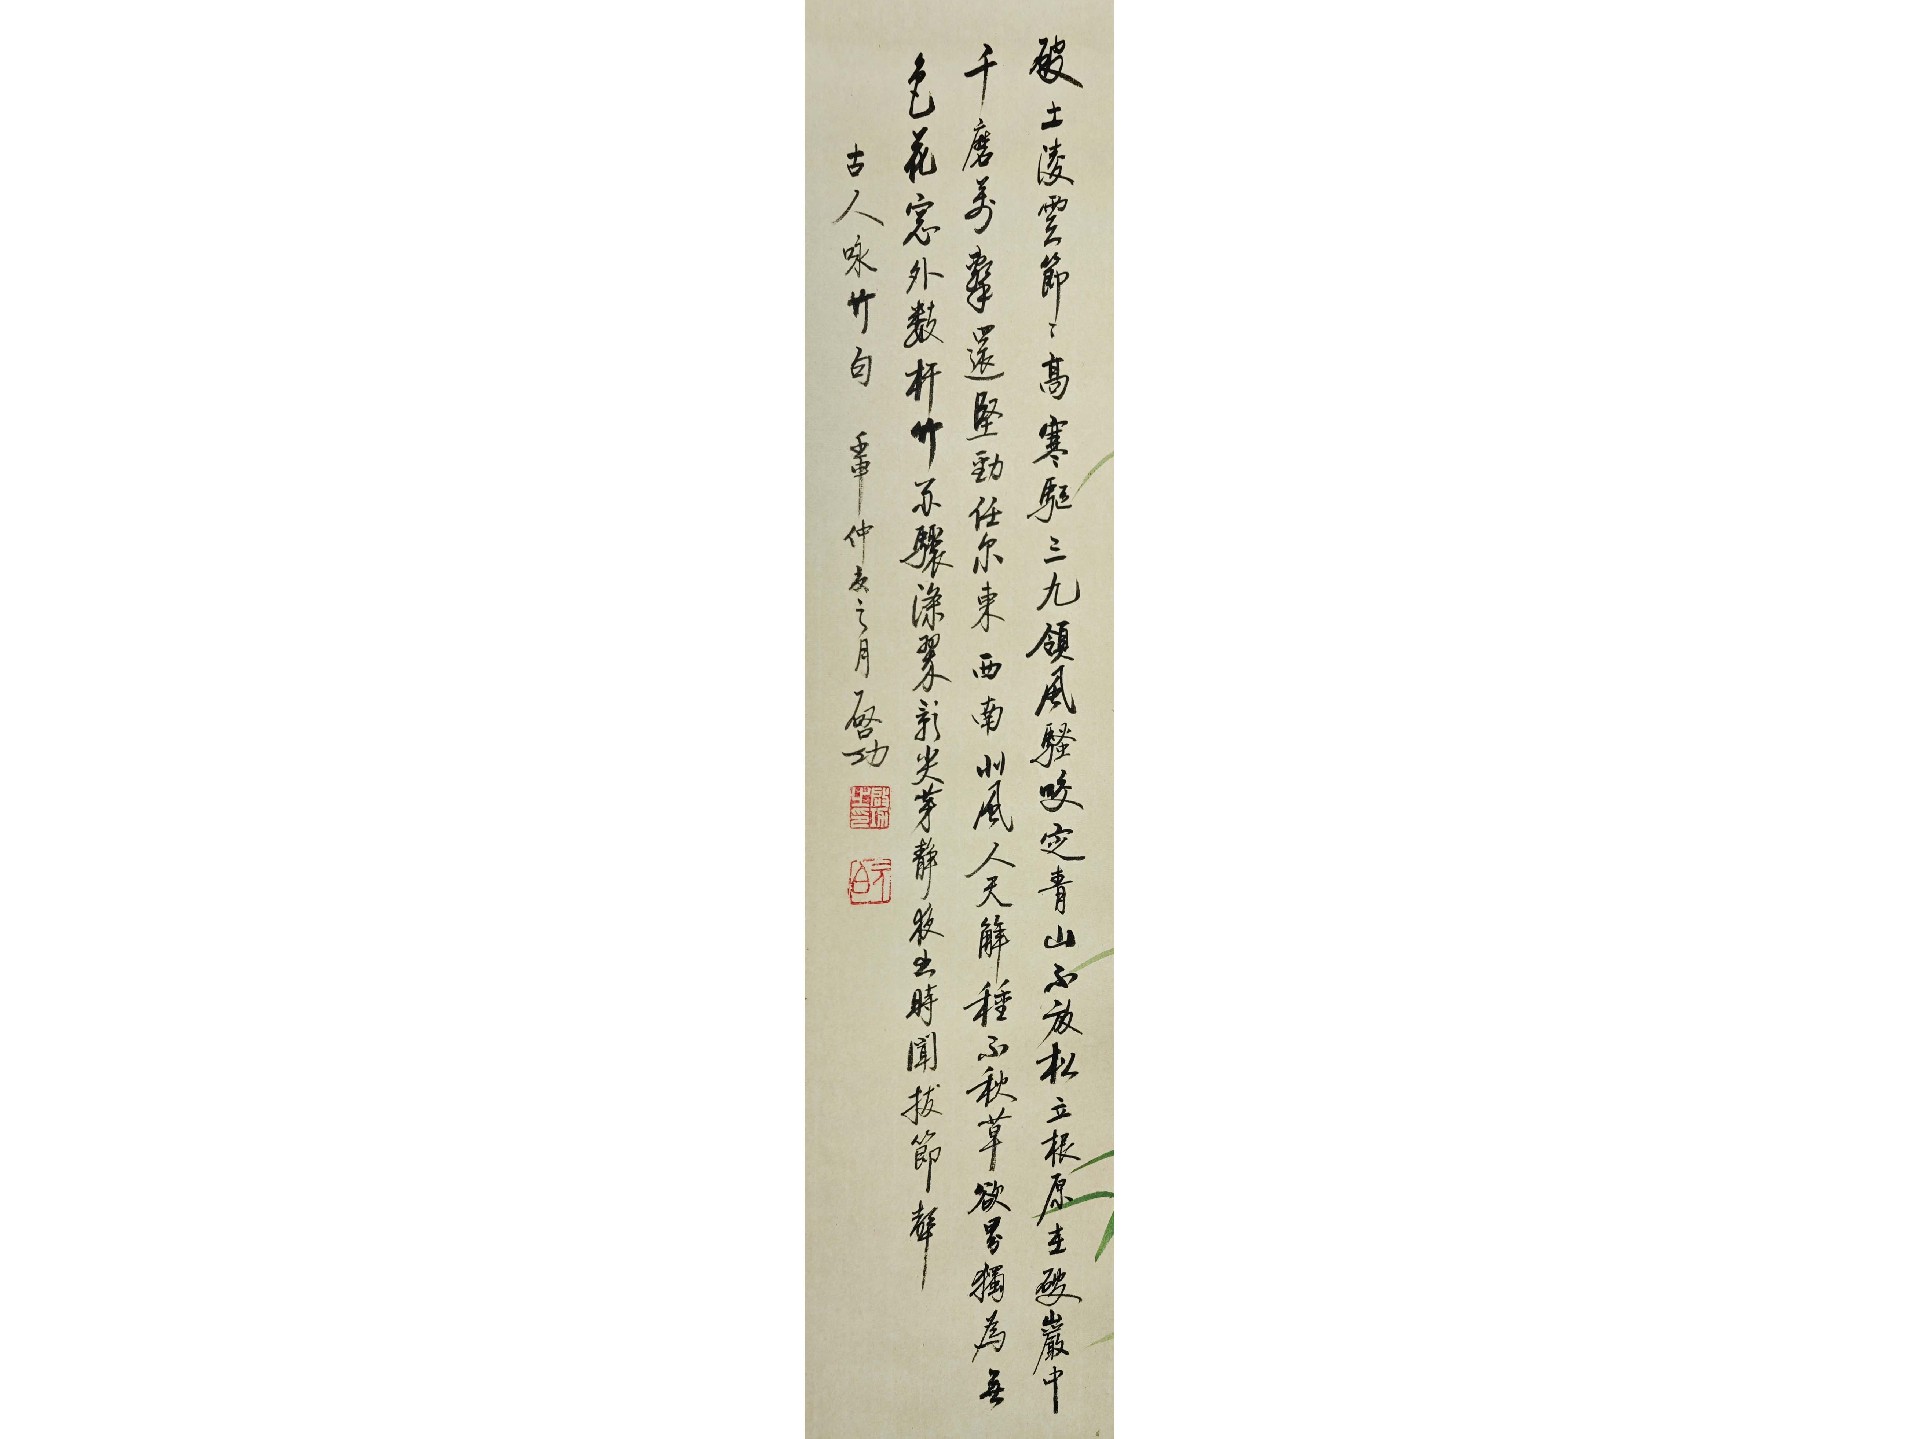 破土凌雲節〻高寒駆三九領風騷咬定青山不放松立根原在破巖中
千磨萬擊還堅勁任尔東西南北風人天解種不秋草欲界獨為無
色花窓外数杆竹不驟添翠影尖芽静夜出時聞拔節聲
古人咏竹句 壬申仲夏之月 啓功